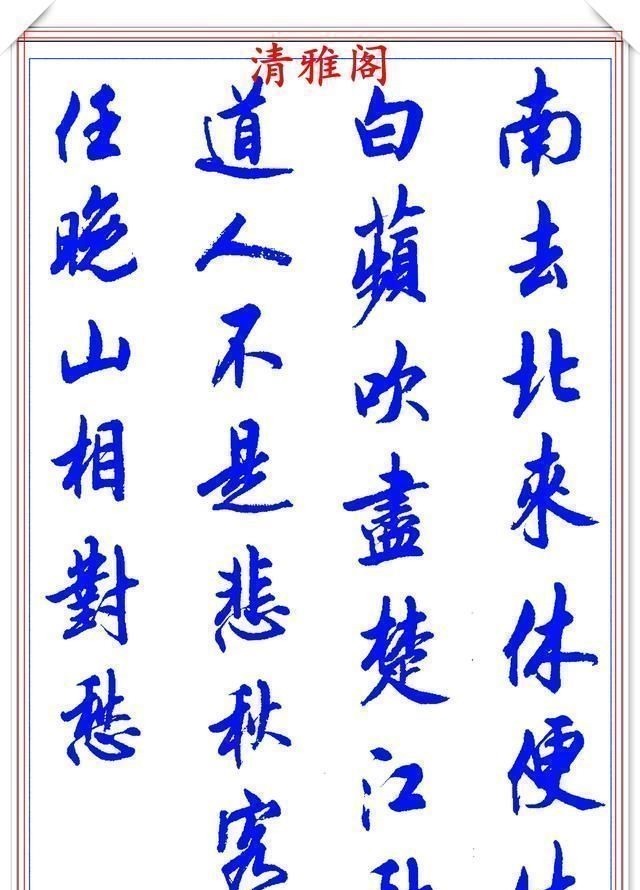 清雅阁
南去北來休便
白蘋吹盡楚江
道人不是悲秋客
任晚山相對愁